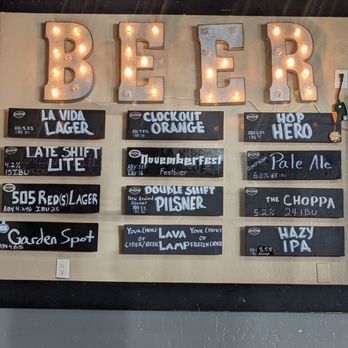 BEER
LA VIDA
LAGER
LATE SHIFT
LITE
4.2%
15 IBU
505 RED(S) LAGER
ABV 4.2% IBU 25
Garden Spot
CLOCKOUT
ORANGE
Novemberfest
Festbier
DOUBLE SHIFT
PILSNER
New Zealand
Pilsner
YOUR CHOICE
OF
CIDER/BEER
LAVA
LAMP
YOUR CHOICE
OF
FROZEN CIDER
HOP
HERO
Pale Ale
THE CHOPPA
5.2% 24 IBU
HAZY
IPA